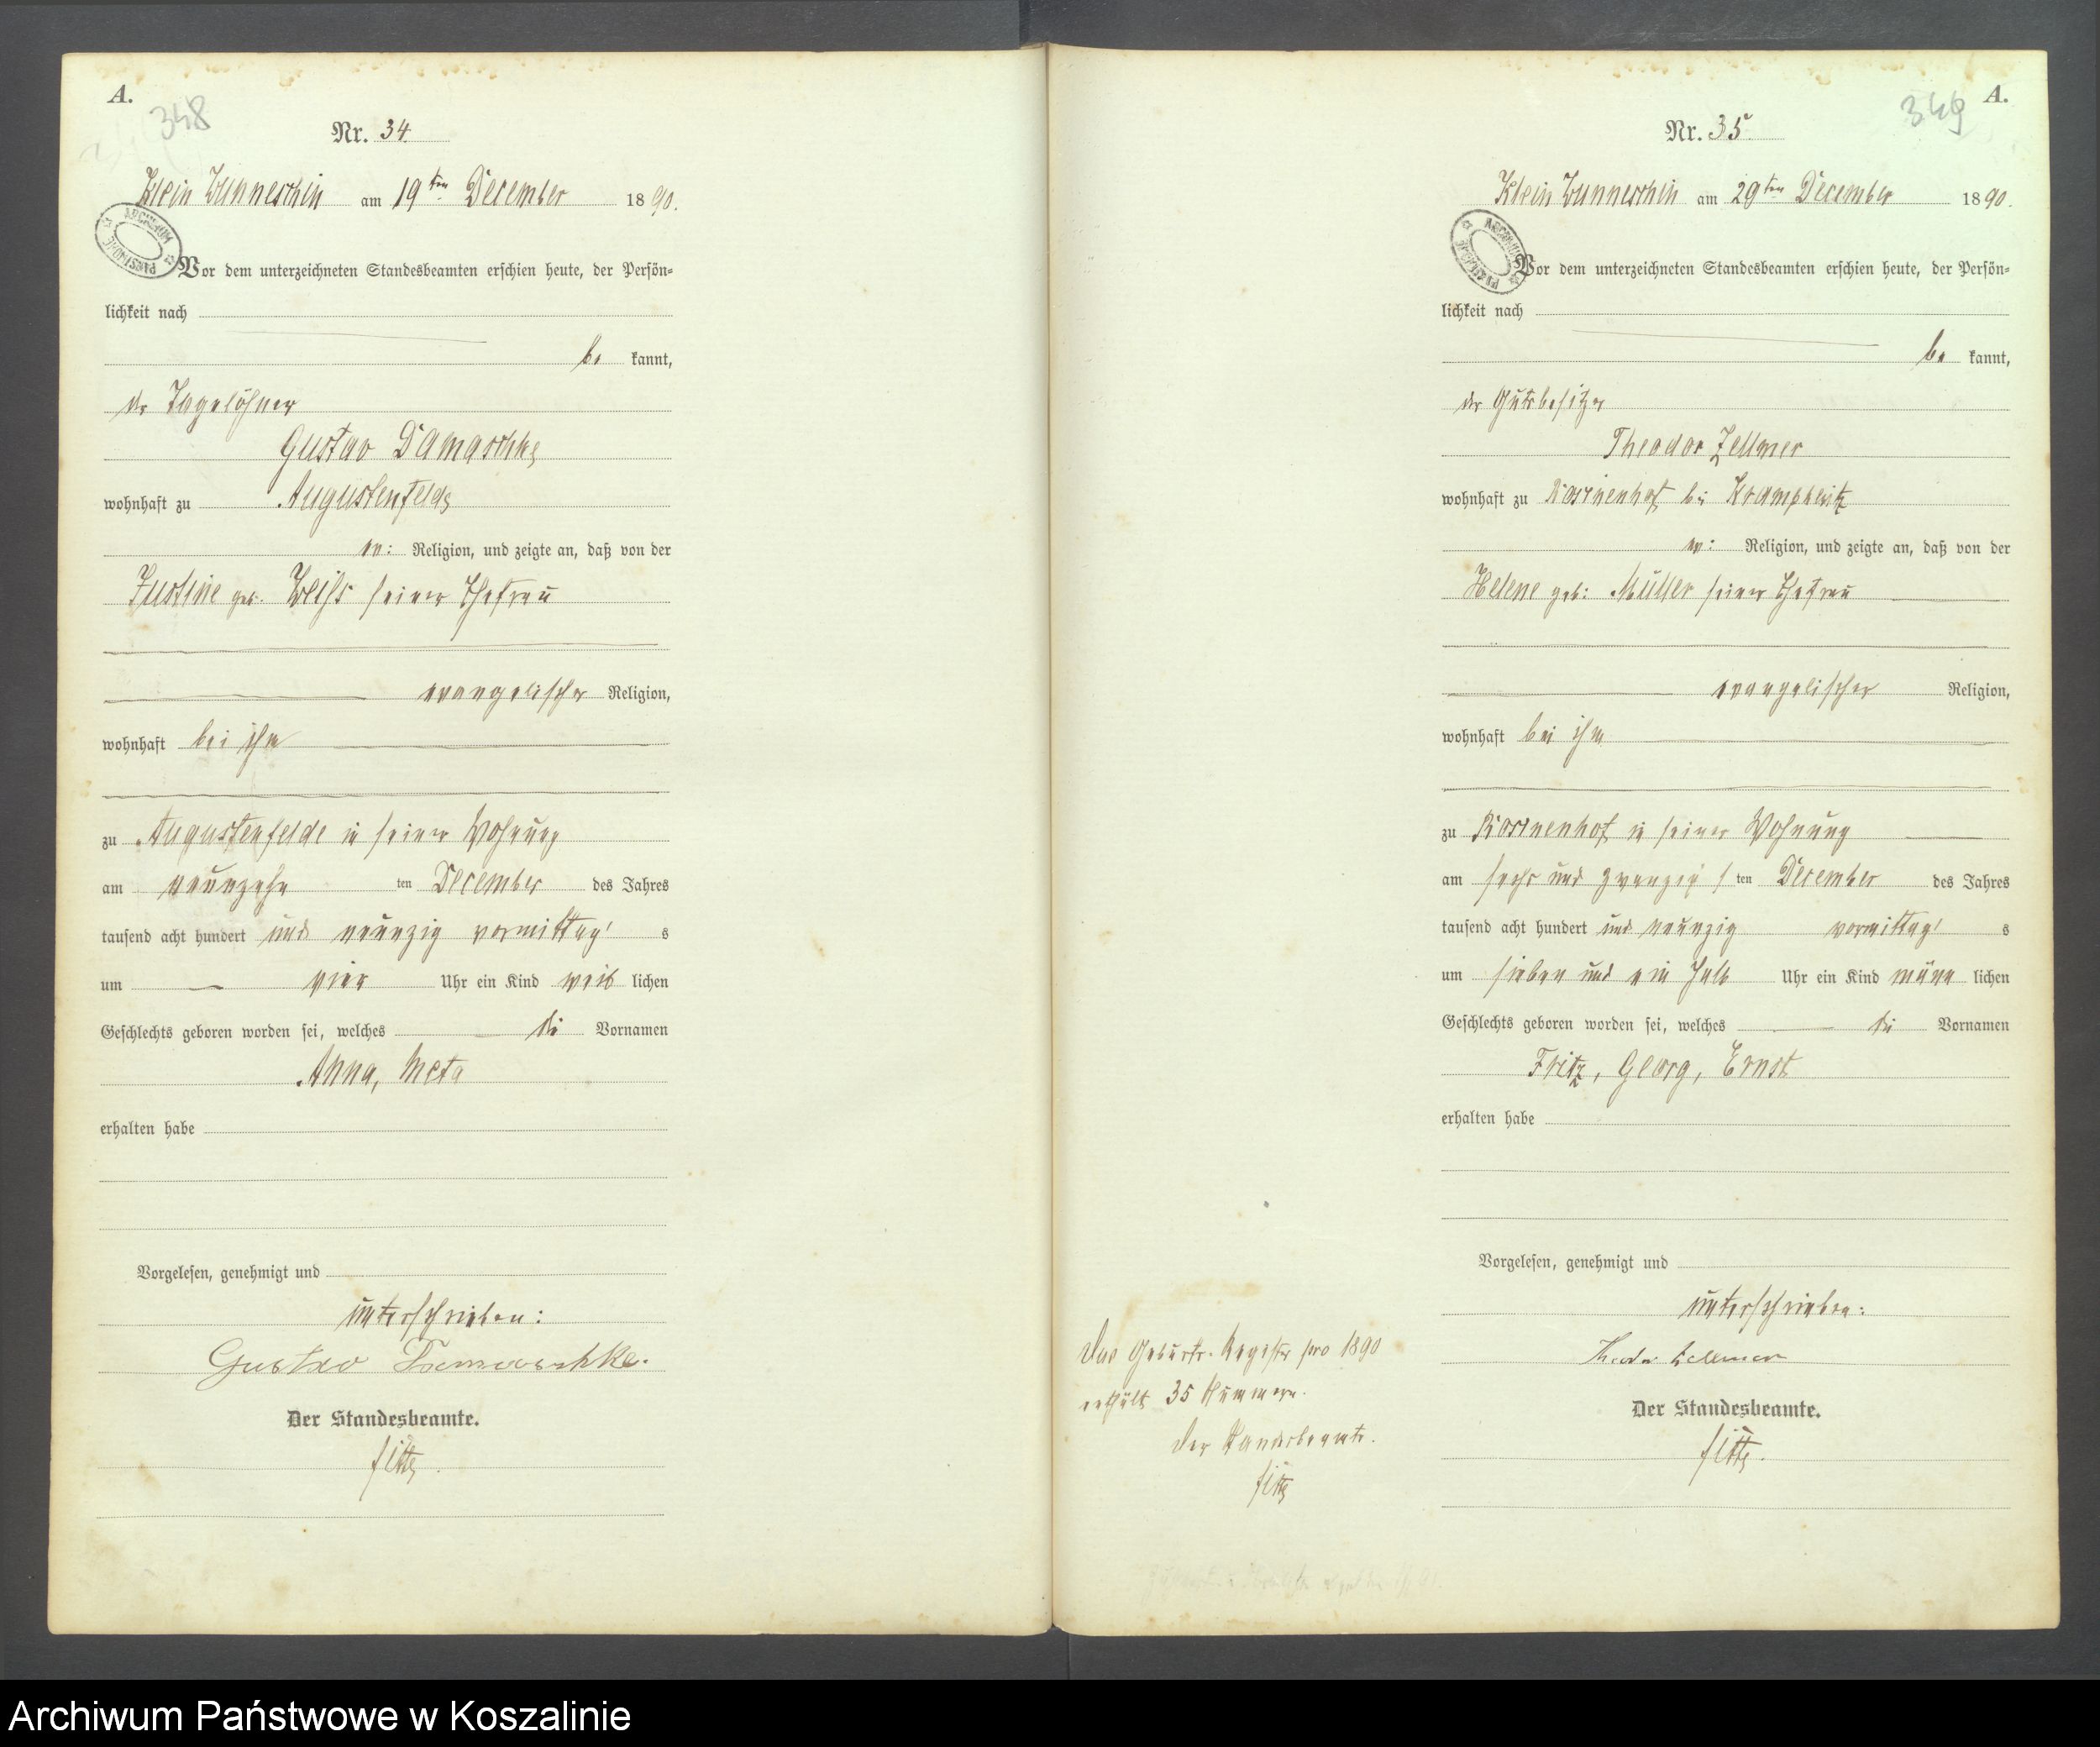 A.
348
Nr. 34.
Klein Wunneschin am 19ten December 1890.
ARCHIWUM PAŃSTWOWE
Vor dem unterzeichneten Standesbeamten erschien heute, der Persön-
lichkeit nach
be kannt,
der Tagelöhner
Gustav Damaschke
wohnhaft zu Augustenfelde
ev: Religion, und zeigte an, daß von der
Justine geb. Weihs seiner Ehefrau
evangelischer Religion,
wohnhaft bei ihm
zu Augustenfelde in seiner Wohnung
am neunzehn ten December des Jahres
tausend acht hundert und neunzig vormittag s
um vier Uhr ein Kind weib lichen
Geschlechts geboren worden sei, welches die Vornamen
Anna, Meta
erhalten habe
Vorgelesen, genehmigt und
unterschrieben:
Gustav Damaschke.
Der Standesbeamte.
A.
349
Nr. 35.
Klein Wunneschin am 29ten December 1890.
ARCHIWUM PAŃSTWOWE
Vor dem unterzeichneten Standesbeamten erschien heute, der Persön-
lichkeit nach
be kannt,
der Gutsbesitzer
Theodor Zellmer
wohnhaft zu bei Krampkewitz
ev: Religion, und zeigte an, daß von der
Helene geb: Müller seiner Ehefrau
evangelischer Religion,
wohnhaft bei ihm
zu in seiner Wohnung
am sechs und zwanzig s ten December des Jahres
tausend acht hundert und neunzig vormittag s
um sieben und ein halb Uhr ein Kind männ lichen
Geschlechts geboren worden sei, welches die Vornamen
Fritz, Georg, Ernst
erhalten habe
Vorgelesen, genehmigt und
unterschrieben:
Theodor Zellmer
Der Standesbeamte.
Das Geburts-Register pro 1890
enthält 35 Nummern.
Der Standesbeamte.
Archiwum Państwowe w Koszalinie